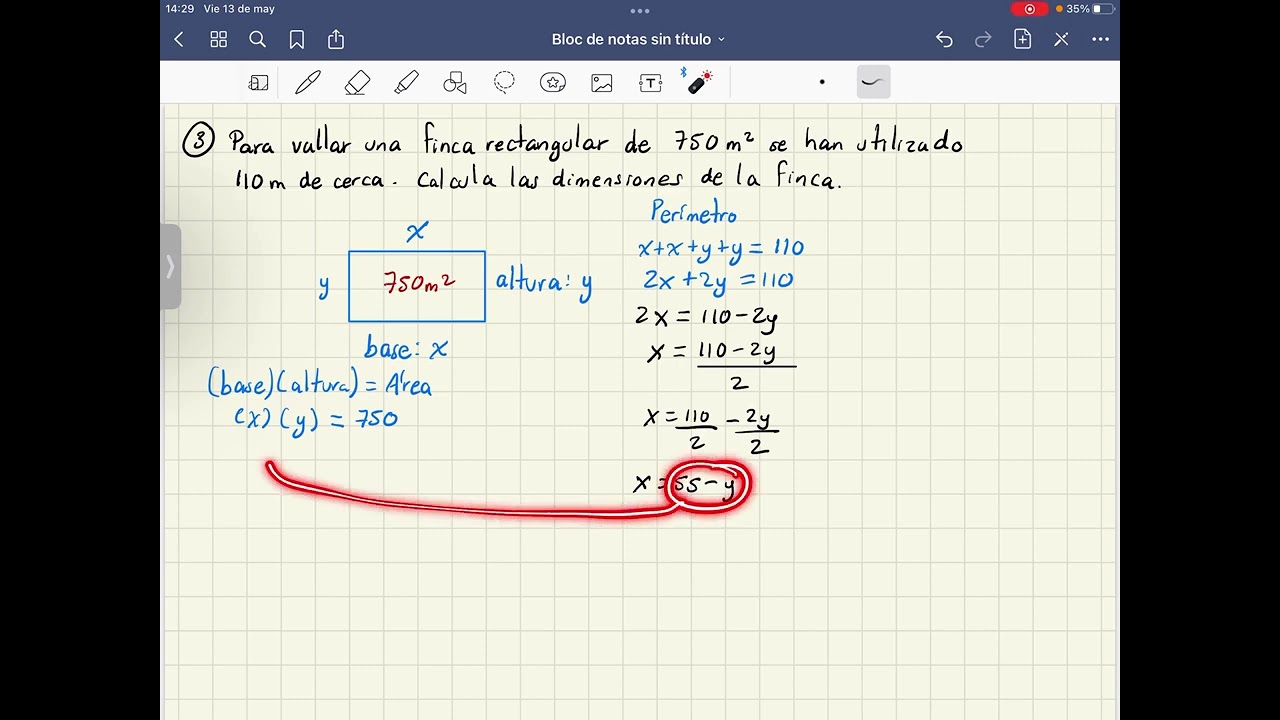 14:29 Vie 13 de may
35%
Bloc de notas sin título
T
3 Para vallar una finca rectangular de 750 m² se han utilizado
110m de cerca. Calcula las dimensiones de la finca.
x
y
750m²
altura: y
base: x
(base)(altura) = Área
(x)(y) = 750
Perímetro
x+x+y+y = 110
2x + 2y = 110
2x = 110 - 2y
x = 110 - 2y
2
x = 110 - 2y
2 2
x = 55 - y